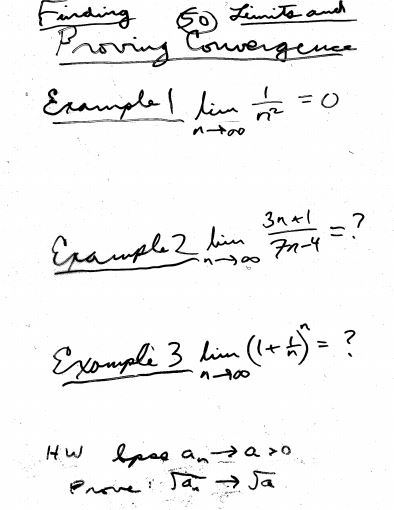 Finding (50) Limits and
Proving Convergence
Example 1 lim n→∞ 1/n² = 0
Example 2 lim n→∞ (3n+1)/(7n-4) = ?
Example 3 lim n→∞ (1 + 1/n)ⁿ = ?
HW aₙ → a > 0
Prove: √aₙ → √a